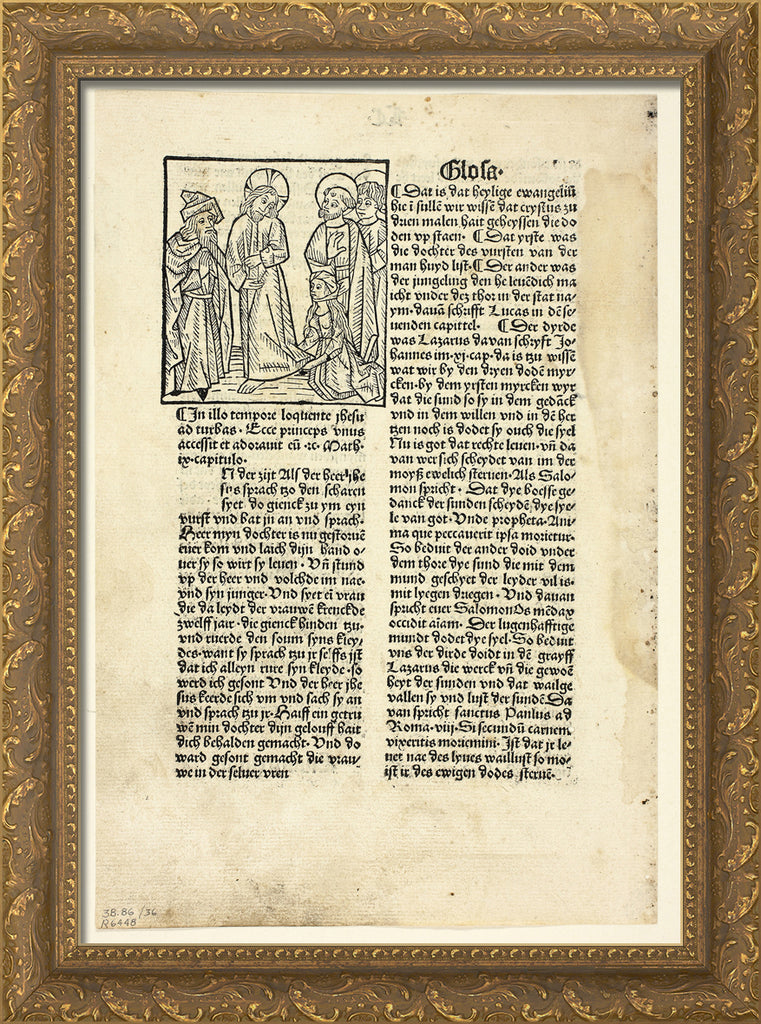 ¶ In illo tempore loquente jhesu
ad turbas · Ecce princeps vnus
accessit et adorauit eū ·⁊c· Math·
ix·capitulo·
N der zijt Als der heer jhe
sus sprach tzo den scharen
syet do gienck zu ym eyn
vurst vnd bat jn an vnd sprach·
Heer myn dochter is nu gestoruē
ener kom vnd laich dijn hand o-
uer sy so wirt sy leuen · Vn̄ stund
vp der heer vnd volchde im nae·
vnd syn junger· Vnd syet eī vrau
die da leydt der vrauwē krenckde
zwelff jair· die gienck hinden tzu·
vnd ruerde den soum syns kley-
des· want sy sprach tzu jr selffs jst
dat ich alleyn rure syn kleyde· so
werd ich gesont Vnd der heer jhe
sus keerde sich vm vnd sach sy an
vnd sprach tzu jr· Haiff ein getru
wē min dochter dijn gelouff hait
dich behalden gemacht· Vnd do
ward gesont gemacht die vrau-
we in der seluer vren
Glosa·
¶ Dat is dat heylige ewangeliū
hie ī sullē wir wissē dat crystus zu
drien malen hait geheyssen die do
den vp staen· ¶ Dat yrste was
die dochter des vursten van der
man huyd list· ¶ Der ander was
der jungeling den he leuēdich ma
icht vnder dez thor in der stat na-
ym· dauā schrifft Lucas in dē se-
uenden capittel· ¶ Der dyrde
was Lazarus davan schryft Jo-
hannes im·xj·cap·da is tzu wissē
wat wir by den dryen dodē myr-
cken· by dem yrsten myrcken wyr
dat die sund so sy in dem gedāck
vnd in dem willen vnd in dē her
tzen noch is dodet sy ouch die syel
Nu is got dat rechte leuen· vn̄ da
van wer sich scheydet van im der
moyß ewelich steruen· Als Salo-
mon spricht · Dat dye boesse ge-
danck der sunden scheydē dye sye-
le van got· Vnde propheta· Ani-
ma que peccauerit ipsa morietur·
So beduit der ander doid vnder
dem thore dye sund die mit dem
mund geschyet der leyder vil is·
mit lyegen driegen · Vnd dauan
spricht euer Salomon Os mēdax
occidit aīam· Der lugenhafftige
mundt dodet dye syel· So beduit
vns der dirde doidt in dē grayff
Lazarus die werck vn̄ die gewoē
heyt der sunden vnd dat wailge
vallen sy vnd lust der sundē· Da
van spricht sanctus Paulus ad
Roma·viij·Si secundū carnem
vixeritis moriemini· Jst dat jr le-
uet nae des lyues waillust so mo-
ist ir des ewigen dodes steruē·
38.86/36
R6448